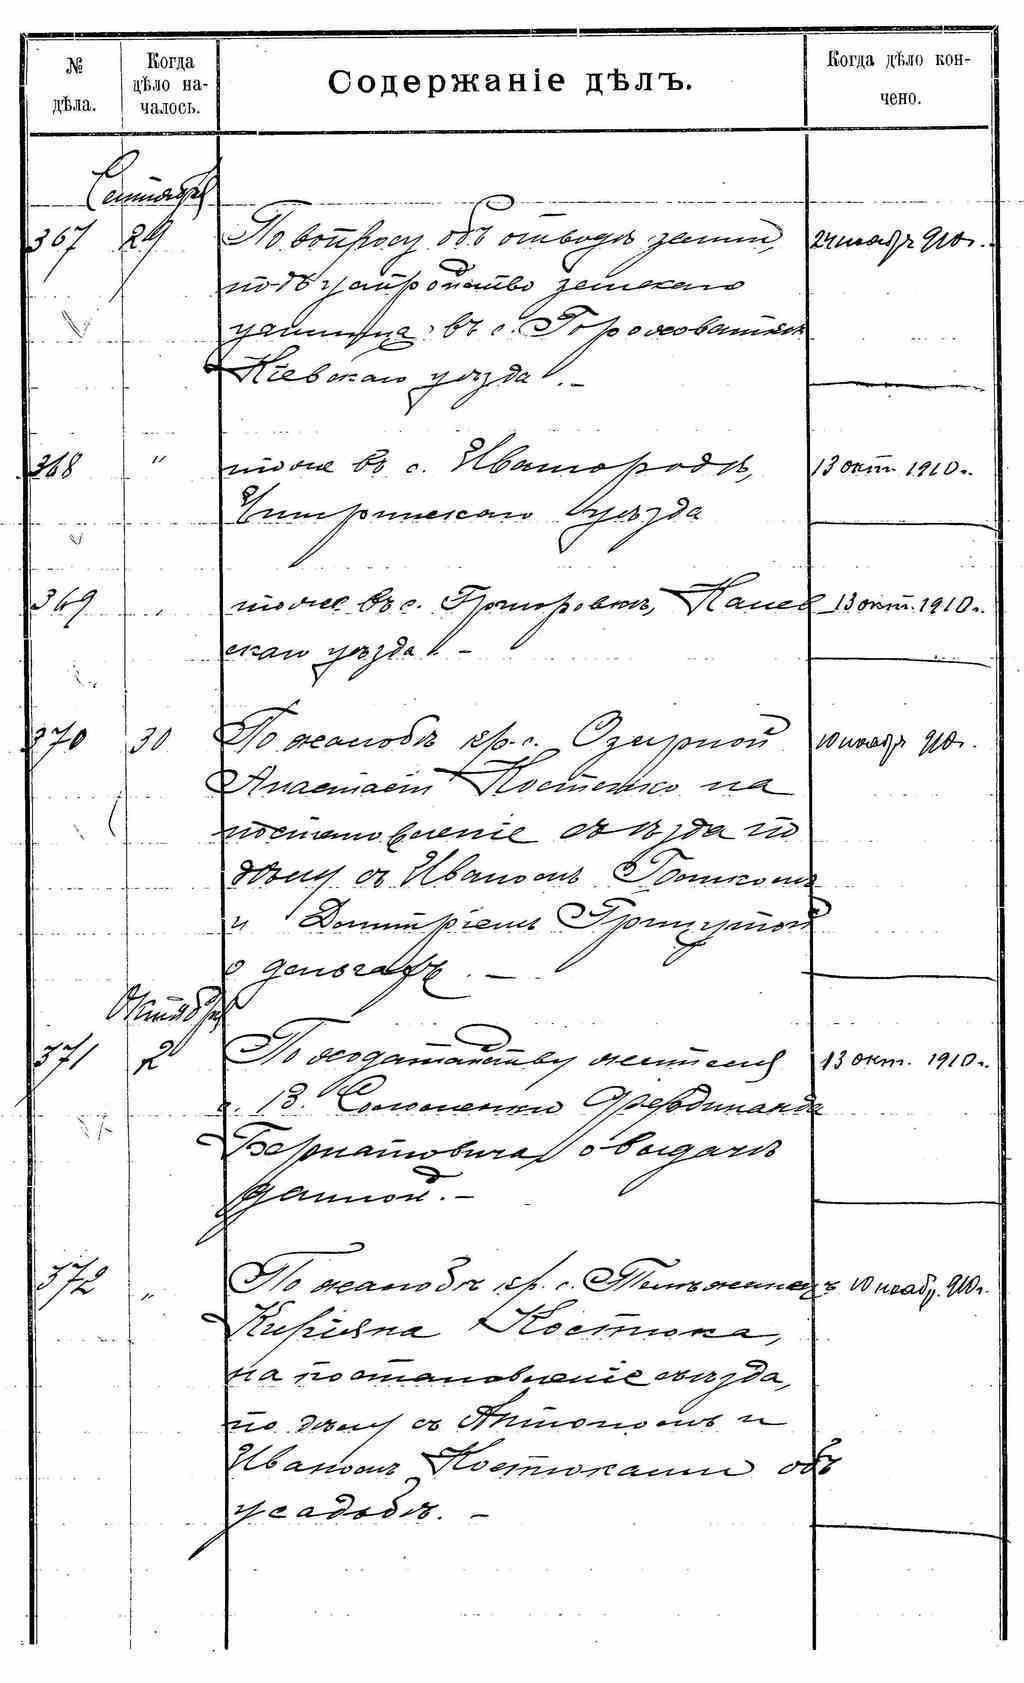 № дѣла.
Когда дѣло на-
чалось.
Содержаніе дѣлъ.
Когда дѣло кон-
чено.
Сентября
367 29 По вопросу объ отводѣ земли, 24 ноябр 910 г.
подъ устройство земскаго
училища въ с. Гороховаткѣ
Кіевскаго уѣзда. –
368 " тоже въ с. Ивангородѣ, 13 окт. 1910 г.
Чигиринскаго уѣзда
369 " тоже въ с. Григоровкѣ, Канев 13 окт. 1910 г.
скаго уѣзда. –
370 30 По жалобѣ кр. с. Озирной 10 ноябр 910 г.
Анастасіи Костенко на
постановленіе съѣзда по
дѣлу съ Иваномъ
и Дмитріемъ
о деньгахъ. –
Октября
371 2 По ходатайству жителя 13 окт. 1910 г.
с. В. Соломенки Фердинанда
Бернатовича, о выдачѣ
данной. –
372 " По жалобѣ кр. с. 10 ноябр. 910 г.
Киріяка Костюка,
на постановленіе съѣзда,
по дѣлу съ Антономъ и
Иваномъ Костюками объ
усадьбѣ. –